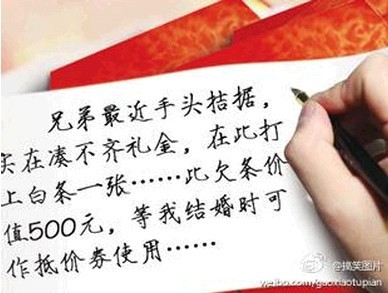 兄弟最近手头拮据，
实在凑不齐礼金，在此打
上白条一张……此欠条价
值500元，等我结婚时可
作抵价券使用……
@搞笑图片
weibo.com/gaoxiaotupian